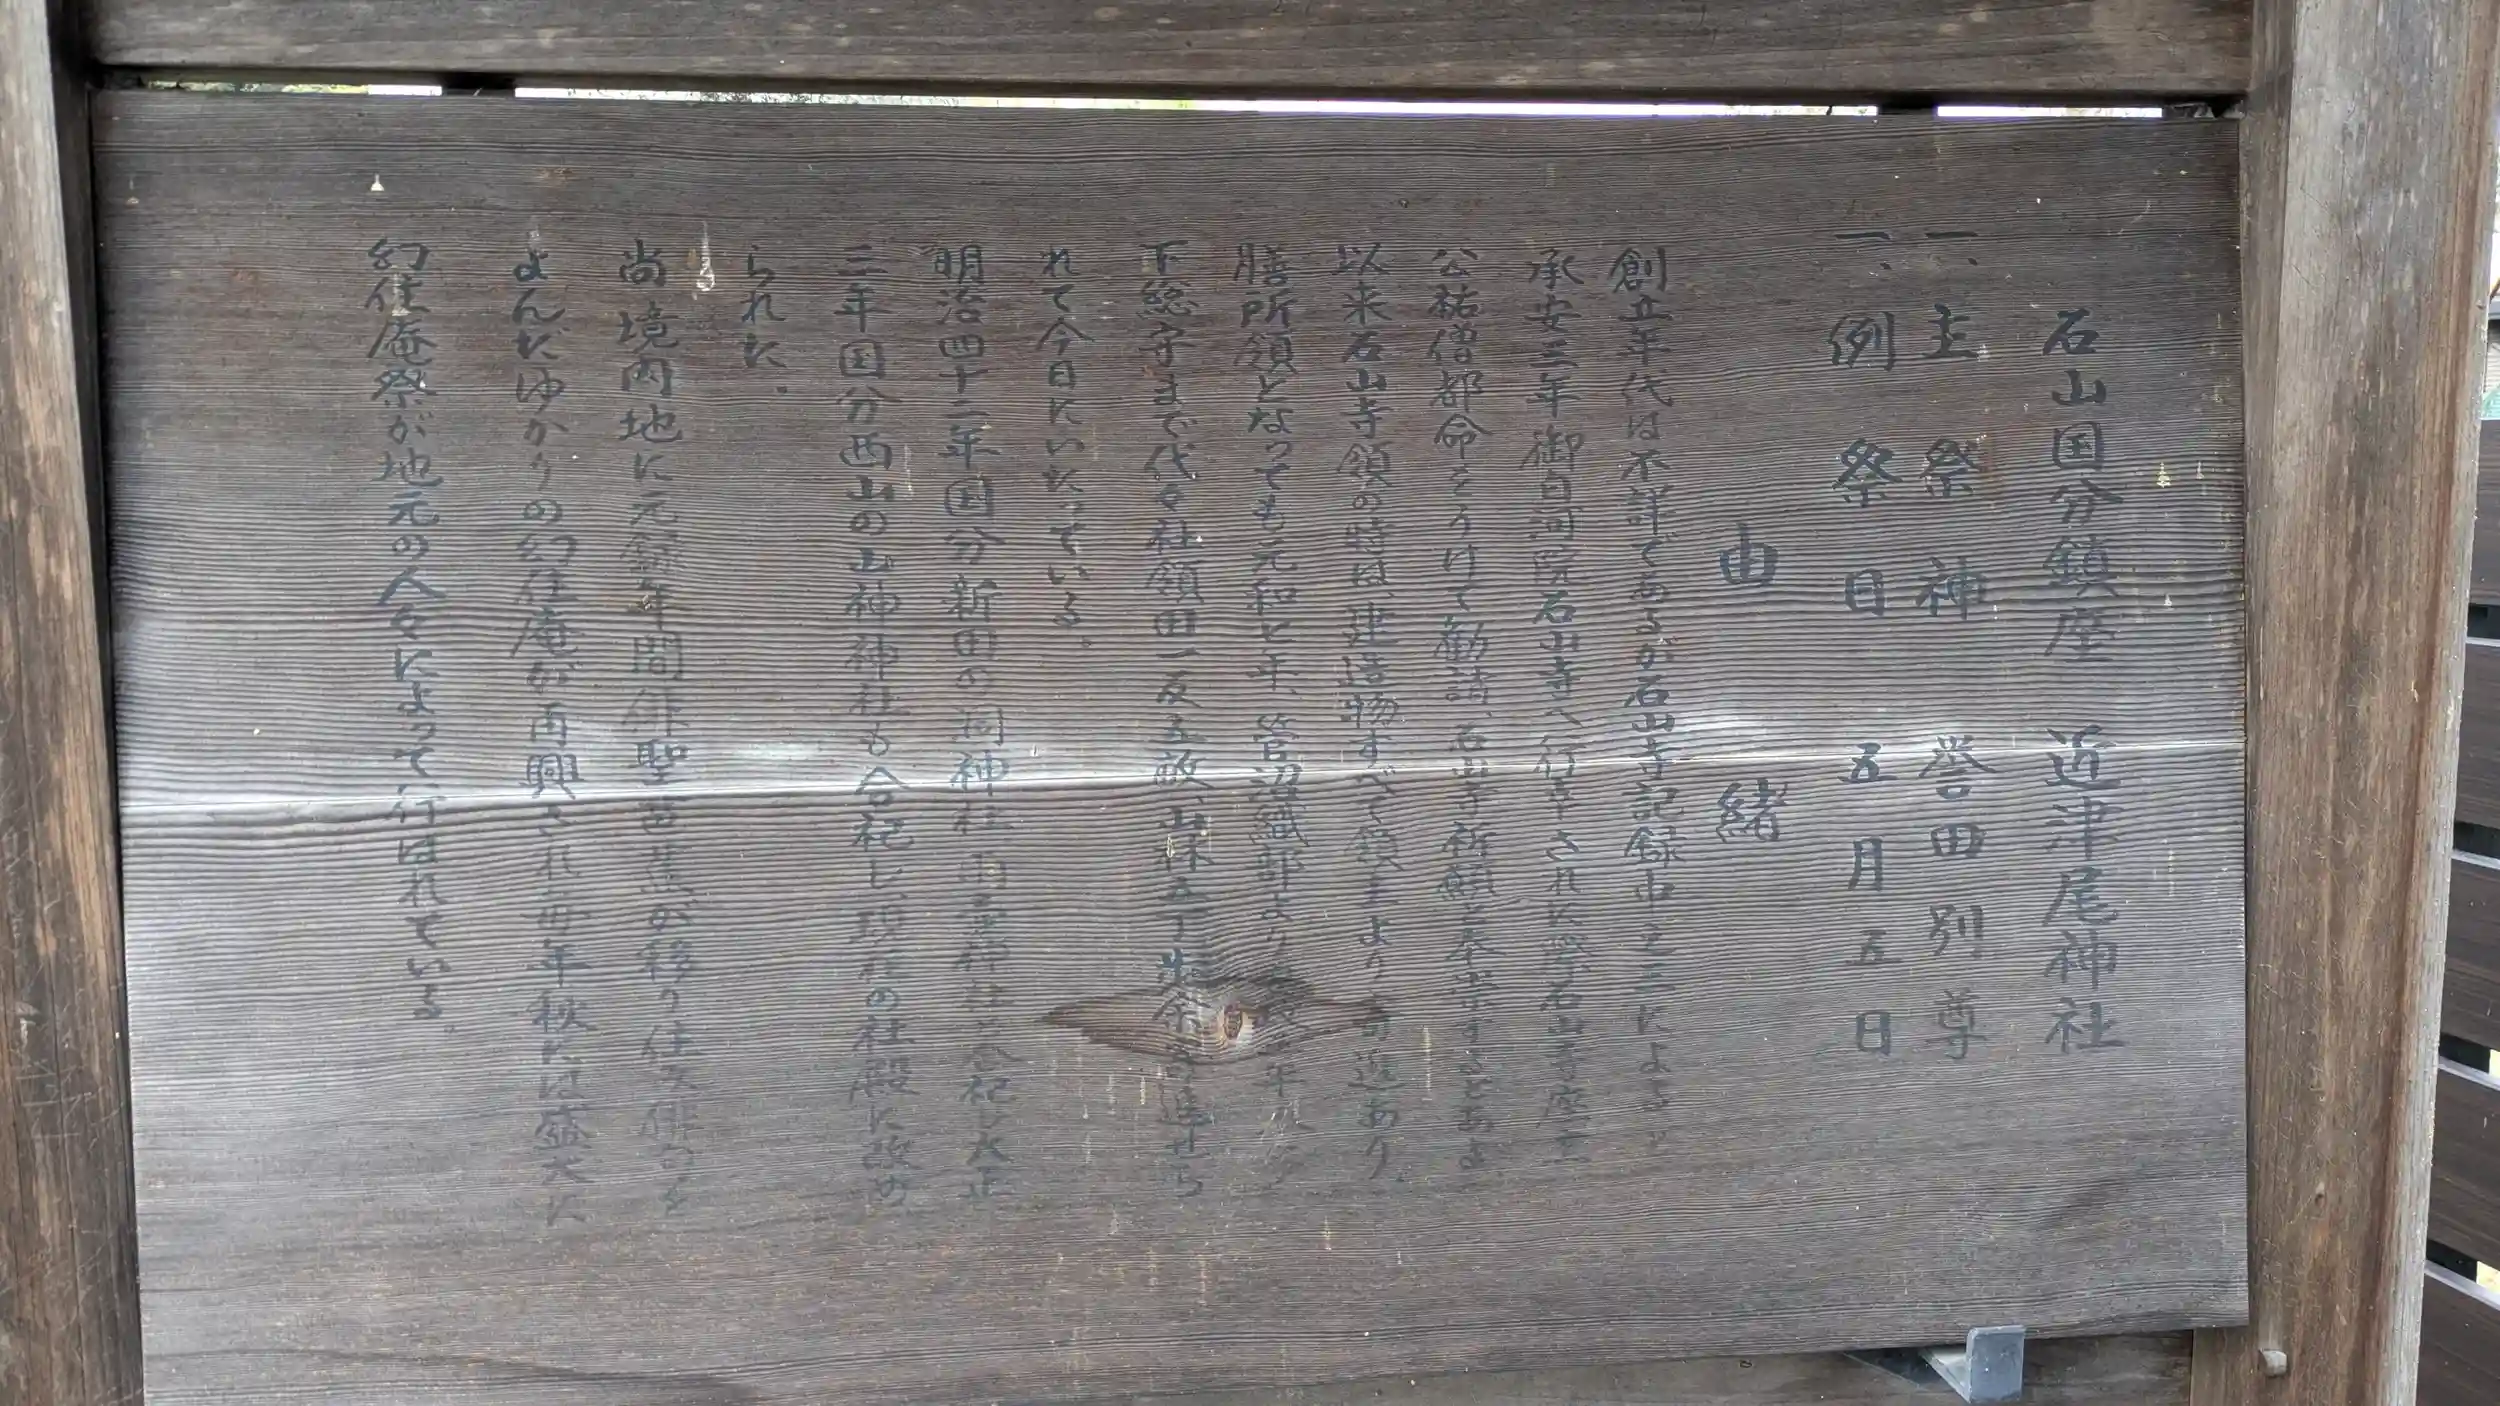 石山国分鎮座 近津尾神社
一、主祭神 誉田別尊
一、例祭日 五月五日
由緒
創立年代は不詳であるが石山寺記録中之三によると
承安三年御白河院石山寺へ行幸された際石山寺座主
公祐僧都命をうけて勧請、石山寺祈願と奉崇する
以来石山寺領の時は、建造物すべて領主より寄進あり、
膳所領となっても元和七年、菅沼織部より
下総守まで代々社領田一反五畝、山林五丁歩余寄進せら
れて今日にいたっている。
明治四十二年国分新田の洞神社 合祀し大正
三年国分西山の山神神社も合祀し、現在の社殿に改め
られた。
尚境内地に元録年間俳聖芭蕉が移り住み俳句を
よんだゆかりの幻住庵が再興され毎年秋には盛大に
幻住庵祭が地元の人々によって行はれている。